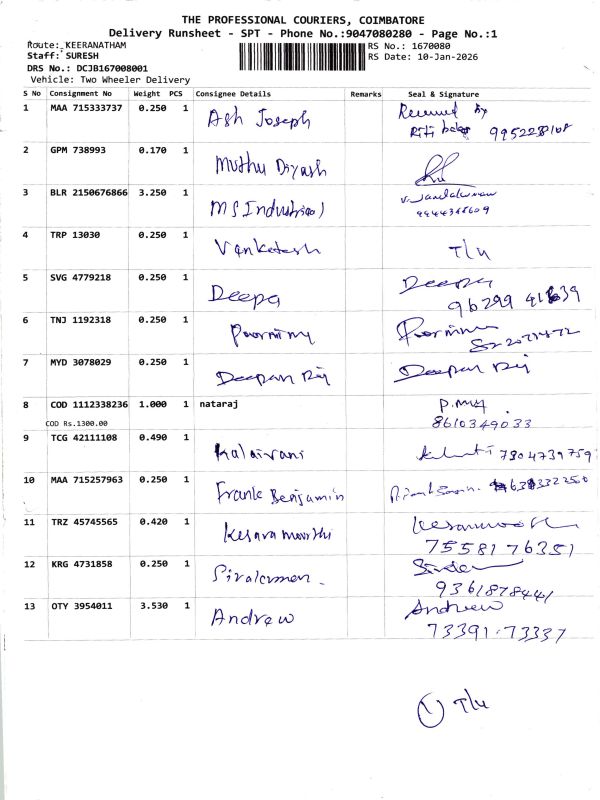 THE PROFESSIONAL COURIERS, COIMBATORE
Delivery Runsheet - SPT - Phone No.:9047080280 - Page No.:1
Route: KEERANATHAM
RS No.: 1670080
Staff: SURESH
RS Date: 10-Jan-2026
DRS No.: DCJB167008001
Vehicle: Two Wheeler Delivery
S No Consignment No Weight PCS Consignee Details Remarks Seal & Signature
1 MAA 715333737 0.250 1 Ash Joseph Received by
2 GPM 738993 0.170 1 Muthu
3 BLR 2150676866 3.250 1 MS Industrial
4 TRP 13030 0.250 1 Vanketesh T/u
5 SVG 4779218 0.250 1 Deepa Deepa
96299
6 TNJ 1192318 0.250 1
7 MYD 3078029 0.250 1 Deepan Raj Deepan Raj
8 COD 1112338236 1.000 1 nataraj
8610349033
COD Rs.1300.00
9 TCG 42111108 0.490 1 Kalaivani 7904739759
10 MAA 715257963 0.250 1 Frank Benjamin
11 TRZ 45745565 0.420 1 Kesava moorthi
7558176351
12 KRG 4731858 0.250 1
9361878441
13 OTY 3954011 3.530 1 Andrew Andrew
73391-73337
1 T/u